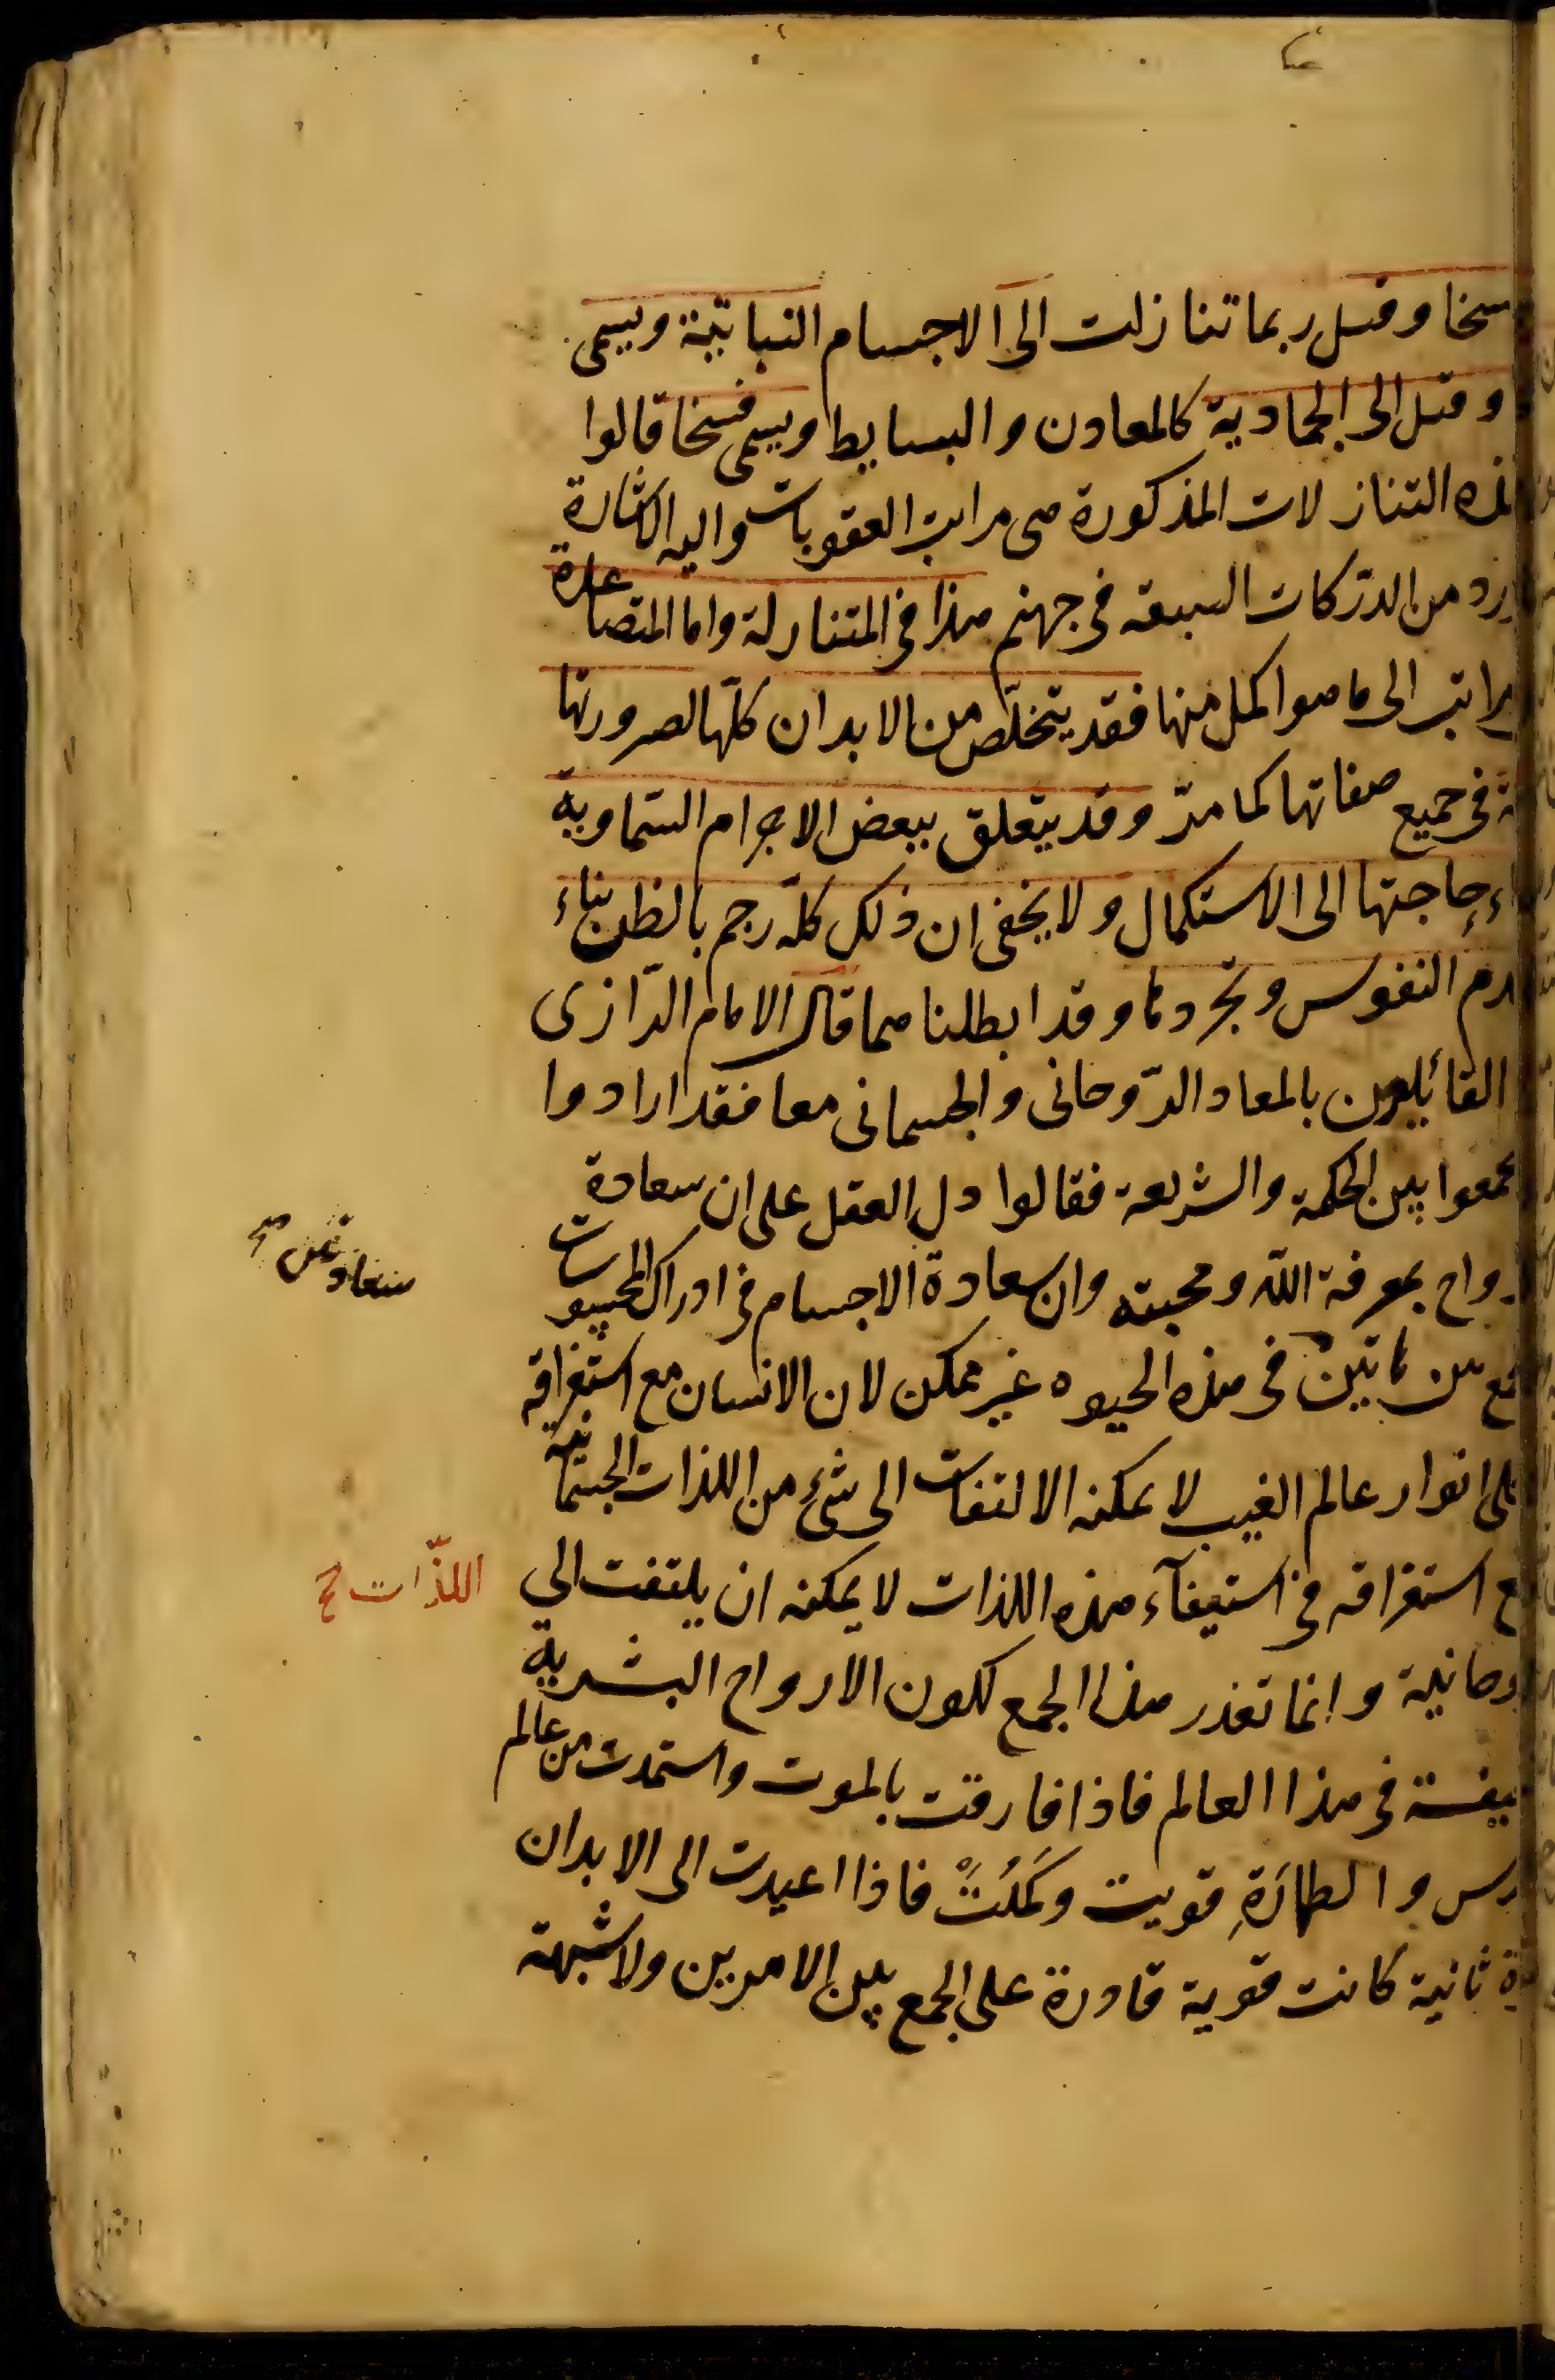 سخا وقيل ربما تنازلت الى الاجسام النباتية ويسمى
وقيل الى الجمادية كالمعادن والبسايط ويسمى فسخا قالوا
هذه التنازلات المذكورة هى مراتب العقوبات واليه الاشارة
ورد من الدركات السبعة فى جهنم هذا فى المتنازلة واما المتصاعدة
مراتب الى ما هو اكمل منها فقد يتخلّص من الابدان كلّها لصيرورتها
فى جميع صفاتها كما مرّ وقد يتعلق ببعض الاجرام السّماوية
حاجتها الى الاستكمال ولا يخفى ان ذلك كلّه رجم بالظن بناء
النفوس وتجردها وقد ابطلناهما قال الامام الرّازى
القائلون بالمعاد الرّوحانى والجسمانى معا فقد ارادوا
يجمعوا بين الحكمة والشريعة فقالوا دل العقل على ان سعادة
رواح بمعرفة اللّه ومحبته وان سعادة الاجسام فى ادراك المحسوسات
بين هاتين فى هذه الحيوه غير ممكن لان الانسان مع استغراقه
انوار عالم الغيب لا يمكنه الالتفات الى شئ من اللذات الجسمانية
ع استغراقه فى استيفآء هذه اللذات لا يمكنه ان يلتفت الى
اللذّات صح
وحانية وانما تعذر هذا الجمع لكون الارواح البشرية
عيفة فى هذا العالم فاذا فارقت بالموت واستمدت من عالم
دس والطهارَةِ قويت وكَمُلَتْ فاذا اعيدت الى الابدان
ة ثانية كانت قوية قادرة على الجمع بين الامرين ولا شبهة